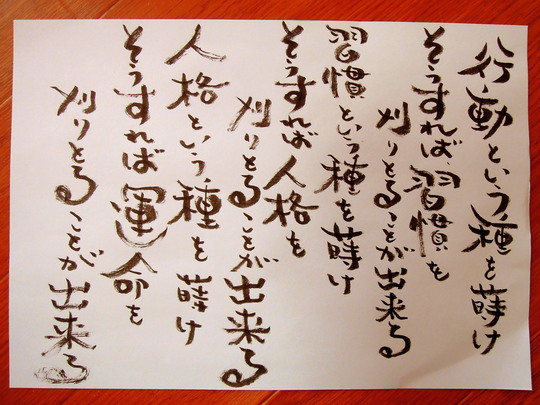 行動という種を蒔け
そうすれば習慣を
刈りとることが出来る
習慣という種を蒔け
そうすれば人格を
刈りとることが出来る
人格という種を蒔け
そうすれば運命を
刈りとることが出来る